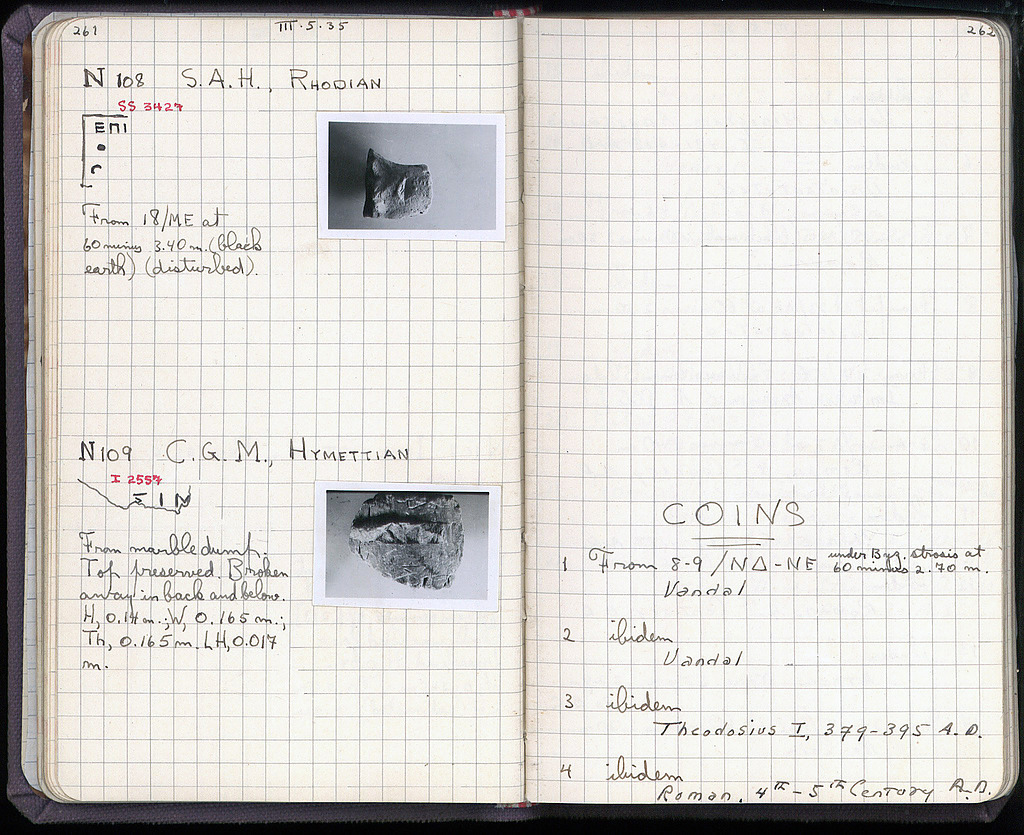 261
III·5·35
N 108 S.A.H., RHODIAN
SS 3427
ΕΠΙ
From 18/ME at
60 minus 3.40 m. (black
earth) (disturbed).
N109 C.G.M., HYMETTIAN
I 2557
ΣΙΝ
From marble dump.
Top preserved. Broken
away in back and below.
H, 0.14 m.; W, 0.165 m.;
Th, 0.165 m. LH, 0.017
m.
262
COINS
1 From 8-9/ΝΔ-ΝΕ under Byz. strosis at
60 minus 2.70 m.
Vandal
2 ibidem
Vandal
3 ibidem
Theodosius I, 379-395 A.D.
4 ibidem
Roman, 4TH-5TH Century A.D.